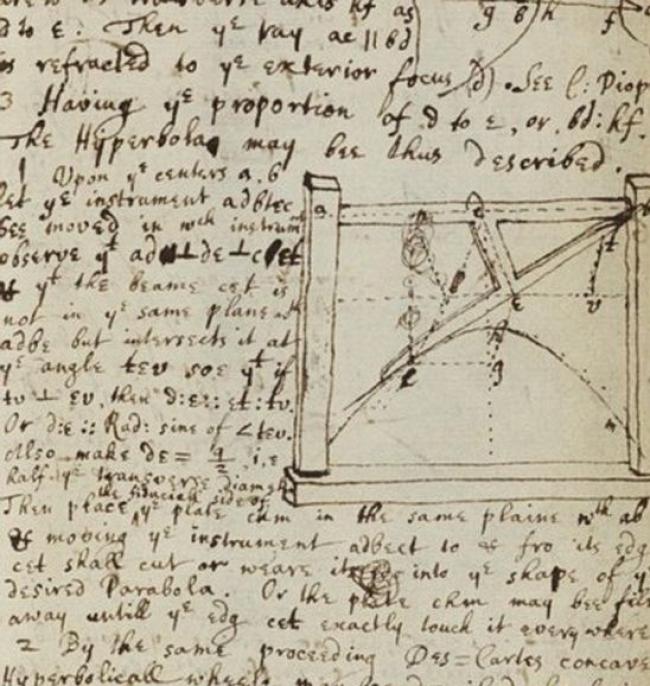 hf as
d to ε: Then yᵉ ray ac || bd
is refracted to yᵉ exterior focus (d). See C: Diop
3 Having yᵉ proportion of d to ε, or, bd: hf.
The Hyperbola may bee thus described.
1 Upon yᵉ centers a. b
let yᵉ instrument adbtec
bee moved in wᶜʰ instrumᵗ
observe yᵗ ad ⊥ de ⊥ cet
& yᵗ the beame cet is
not in yᵉ same plane wᵗʰ
adbe but intersects it at
yᵉ angle tev soe yᵗ if
tv ⊥ ev, then d:ε:: et: tv.
Or d:ε :: Rad: sine of ∠tev.
Also make de = q/2, i.e
half yᵉ transverse diam
Then place the fiduciall side of yᵉ plate chm in the same plaine wᵗʰ ab
& moving yᵉ instrument adbect to & fro its edg
cet shall cut or weare it into yᵉ shape of yᵉ
desired Parabola. Or the plate chm may bee file
away untill yᵉ edg cet exactly touch it every where
2 By the same proceeding Des=Cartes concave
Hyperbolicall wheele may bee described
g b h f
a
e
t
v
c
h
g
m